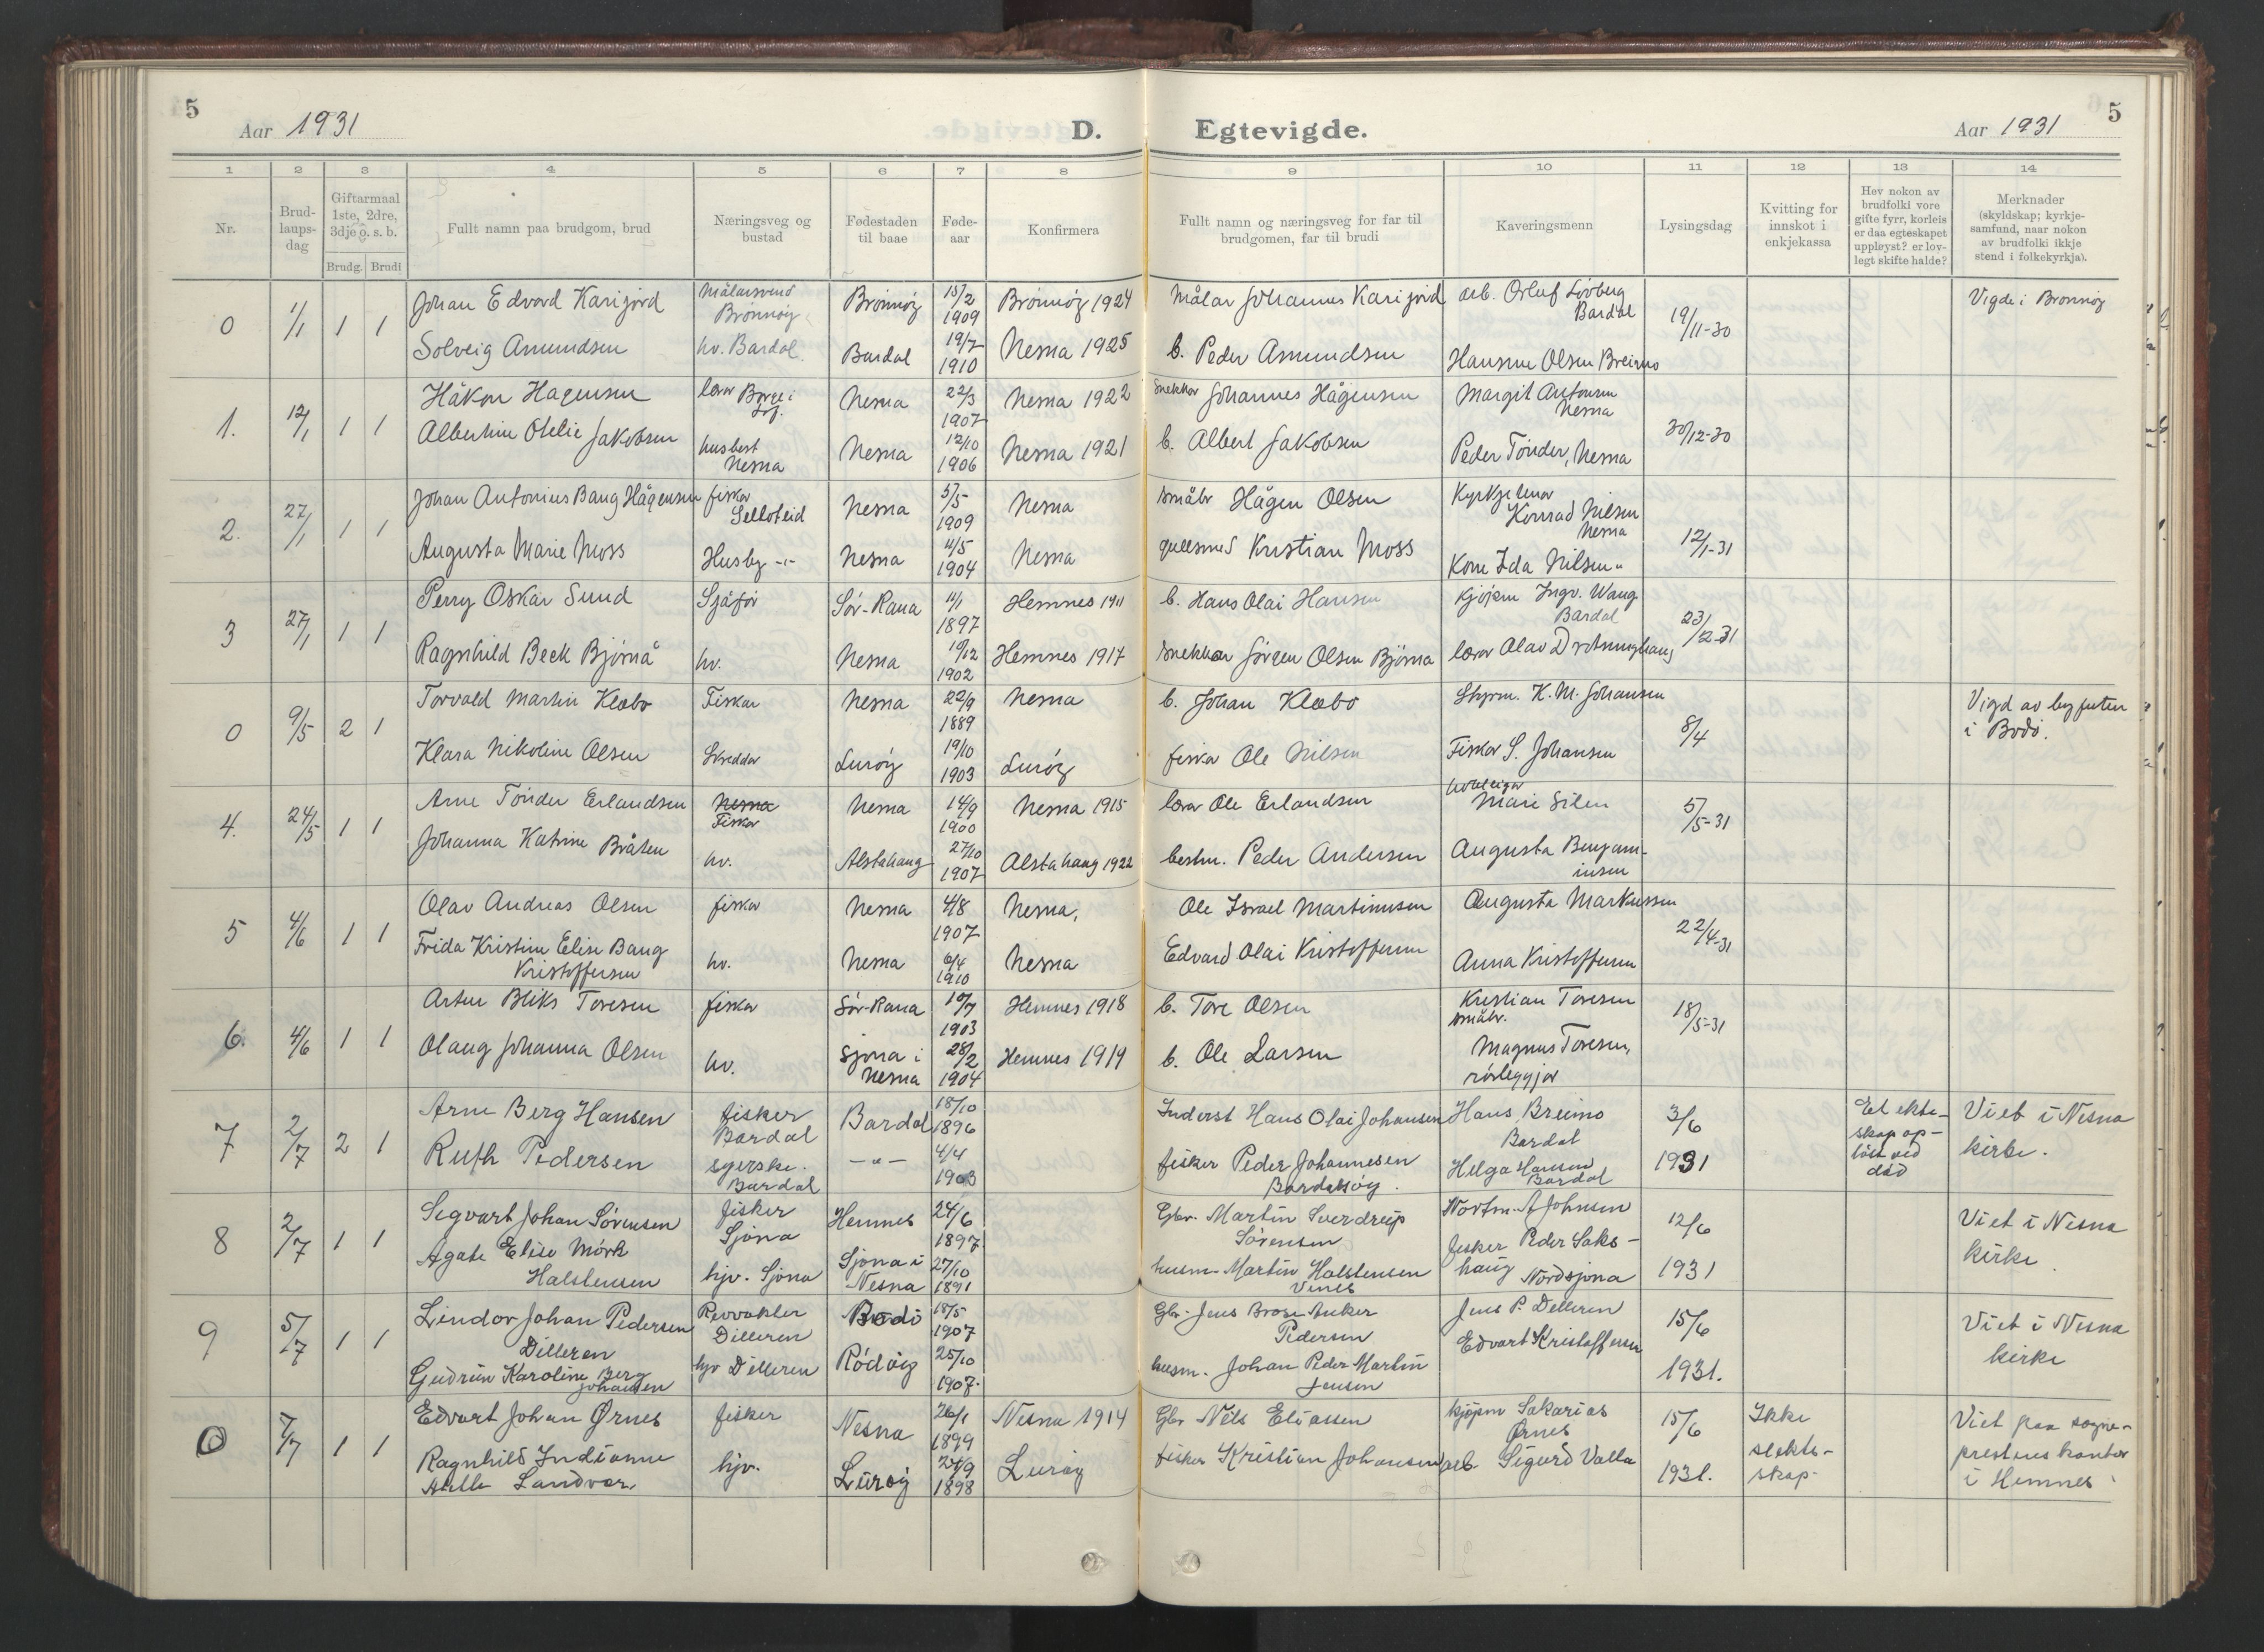 5
Aar 1931
D.
Egtevigde.
Aar 1931
5
1 2 3 4 5 6 7 8 9 10 11 12 13 14
Nr.
Brud-
laups-
dag
Giftarmaal
1ste, 2dre,
3dje o. s. b.
Brudg. Brudi
Fullt namn paa brudgom, brud
Næringsveg og
bustad
Fødestaden
til baae
Føde-
aar
Konfirmera
Fullt namn og næringsveg for far til
brudgomen, far til brudi
Kaveringsmenn
Lysingsdag
Kvitting for
innskot i
enkjekassa
Hev nokon av
brudfolki vore
gifte fyrr, korleis
er daa egteskapet
uppløyst? er lov-
legt skifte halde?
Merknader
(skyldskap; kyrkje-
samfund, naar nokon
av brudfolki ikkje
stend i folkekyrkja).
0 1/1 1 1
Johan Edvard Karijord Målarsvend Brønnøy Brønnøy 15/2 1909 Brønnøy 1924 Målar Johannes Karijord arb. Orluf Lövberg Bardal 19/11-30 Vigde i Brønnøy
Solveig Amundsen hv. Bardal Bardal 19/7 1910 Nesna 1925 b. Peder Amundsen Hansine Olsen
1. 12/1 1 1
Håkon Hagensen lærar Nesna 22/3 1907 Nesna 1922 Snekkar Johannes Hågensen Margit Antonsen Nesna 30/12-30
Albertine Otelie Jakobsen husbest Nesna Nesna 12/10 1906 Nesna 1921 b. Albert Jakobsen Peder Tönder, Nesna
2. 27/1 1 1
Johan Antonius Baug Hågensen fiskar Nesna 5/5 1909 Nesna småbr Hågen Olsen Konrad Nilsen Nesna 12/1-31
Augusta Marie Moss Husby -"- Nesna 4/5 1904 Nesna gullsmed Kristian Moss Kone Ida Nilsen "
3 27/1 1 1
Perry Oskar Sund Sjåför Sör-Rana 11/1 1897 Hemnes 1911 b. Hans Olai Hansen Kjöpm Ingv. Wang Bardal
Ragnhild Beck Bjömå hv. Nesna 19/12 1902 Hemnes 1917 Snekkar Jörgen Olsen Bjöma lærar Olav Dretninghaug
0 9/5 2 1
Torvald Martin Klæbo Fiskar Nesna 22/9 1889 Nesna b. Johan Klæbo K. M. Johansen 8/4 Vigd av byfuten
i Bodö.
Klara Nikoline Olsen Skreddar Luröy 19/10 1903 Luröy fiskar Ole Nilsen Fiskar S. Johansen
4. 24/5 1 1
Arne Tönder Erlandsen Nesna Fiskar Nesna 14/9 1900 Nesna 1915 lærar Ole Erlandsen Marie Silen 5/5-31
Johanna Katrine Bråten hv. Alstahaug 27/10 1907 Alstahaug 1922 bestm. Peder Andersen Augusta Benjam-
insen
5 4/6 1 1
Olav Andreas Olsen fiskar Nesna 4/8 1907 Nesna, Ole Israel Martinusen Augusta Markussen 22/4-31
Frida Kristine Elise Baug
Kristoffersen hv. Nesna 6/4 1910 Nesna Edvard Olai Kristoffersen Anna Kristoffersen
6. 4/6 1 1
Artur Bliks Toresen fiskar Sör-Rana 10/7 1903 Hemnes 1918 b. Tore Olsen Kristian Toresen
småbr. 18/5-31
Olaug Johanna Olsen hv. Sjona i
Nesna 28/2 1904 Hemnes 1919 b. Ole Larsen Magnus Toresen,
rörleggjar
7 2/7 2 1
Arne Berg Hansen fisker
Bardal Bardal 18/10 1896 Inderst Hans Olai Johansen Hans Breimo
Bardal 3/6 1931 Et ekte-
skap op-
löst ved
död Viet i Nesna
kirke.
Ruth Pedersen syerske.
Bardal -"- 4/4 1903 fisker Peder Johannesen Helga Hansen
Bardal
8 2/7 1 1
Segvart Johan Sörensen fisker
Sjona Hemnes 24/6 1897 Gbr. Martin Sverdrup
Sörensen A Johnsen 12/6 1931 Viet i Nesna
kirke
Agate Elise Mörk
Halstensen hjv. Sjona Sjona i
Nesna 27/10 1891 husm. Martin Halstensen fisker Peder Saks-
haug Nordsjona
9 5/7 1 1
Lindor Johan Pedersen
Dilleren Dilleren Bodö 18/5 1907 Gbr. Jens Brose Anker
Pedersen Jens P. Delleren 15/6 1931. Viet i Nesna
kirke
Gudrun Karoline Berg
Johansen hjv Dilleren Rödöy 25/10 1907. husm. Johan Peder Martin
Jensen Edvart Kristoffersen
0 7/7 1 1
Edvart Johan Ørnes fisker Nesna 26/1 1899 Nesna 1914 Gbr Nils Eliassen kjöpm Sakarias
Ørnes 15/6 1931. Ikke
slekts-
skap. Viet paa sogne-
prestens kontor
i Hemnes
Ragnhild Indianne
Landvor hjv. Luröy 24/9 1898 Luröy fisker Kristian Johansen arb. Sigurd Valla